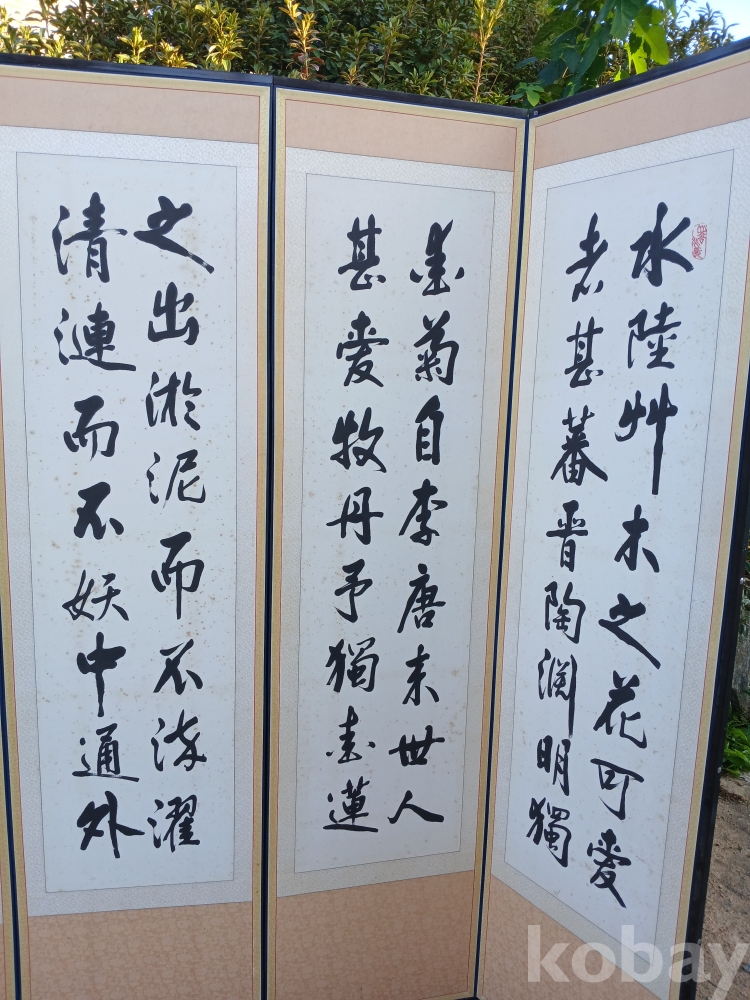 水陸艸木之花可愛
者甚蕃晋陶渕明獨
愛菊自李唐来世人
甚愛牧丹予獨愛蓮
之出淤泥而不染濯
清漣而不妖中通外
kobay